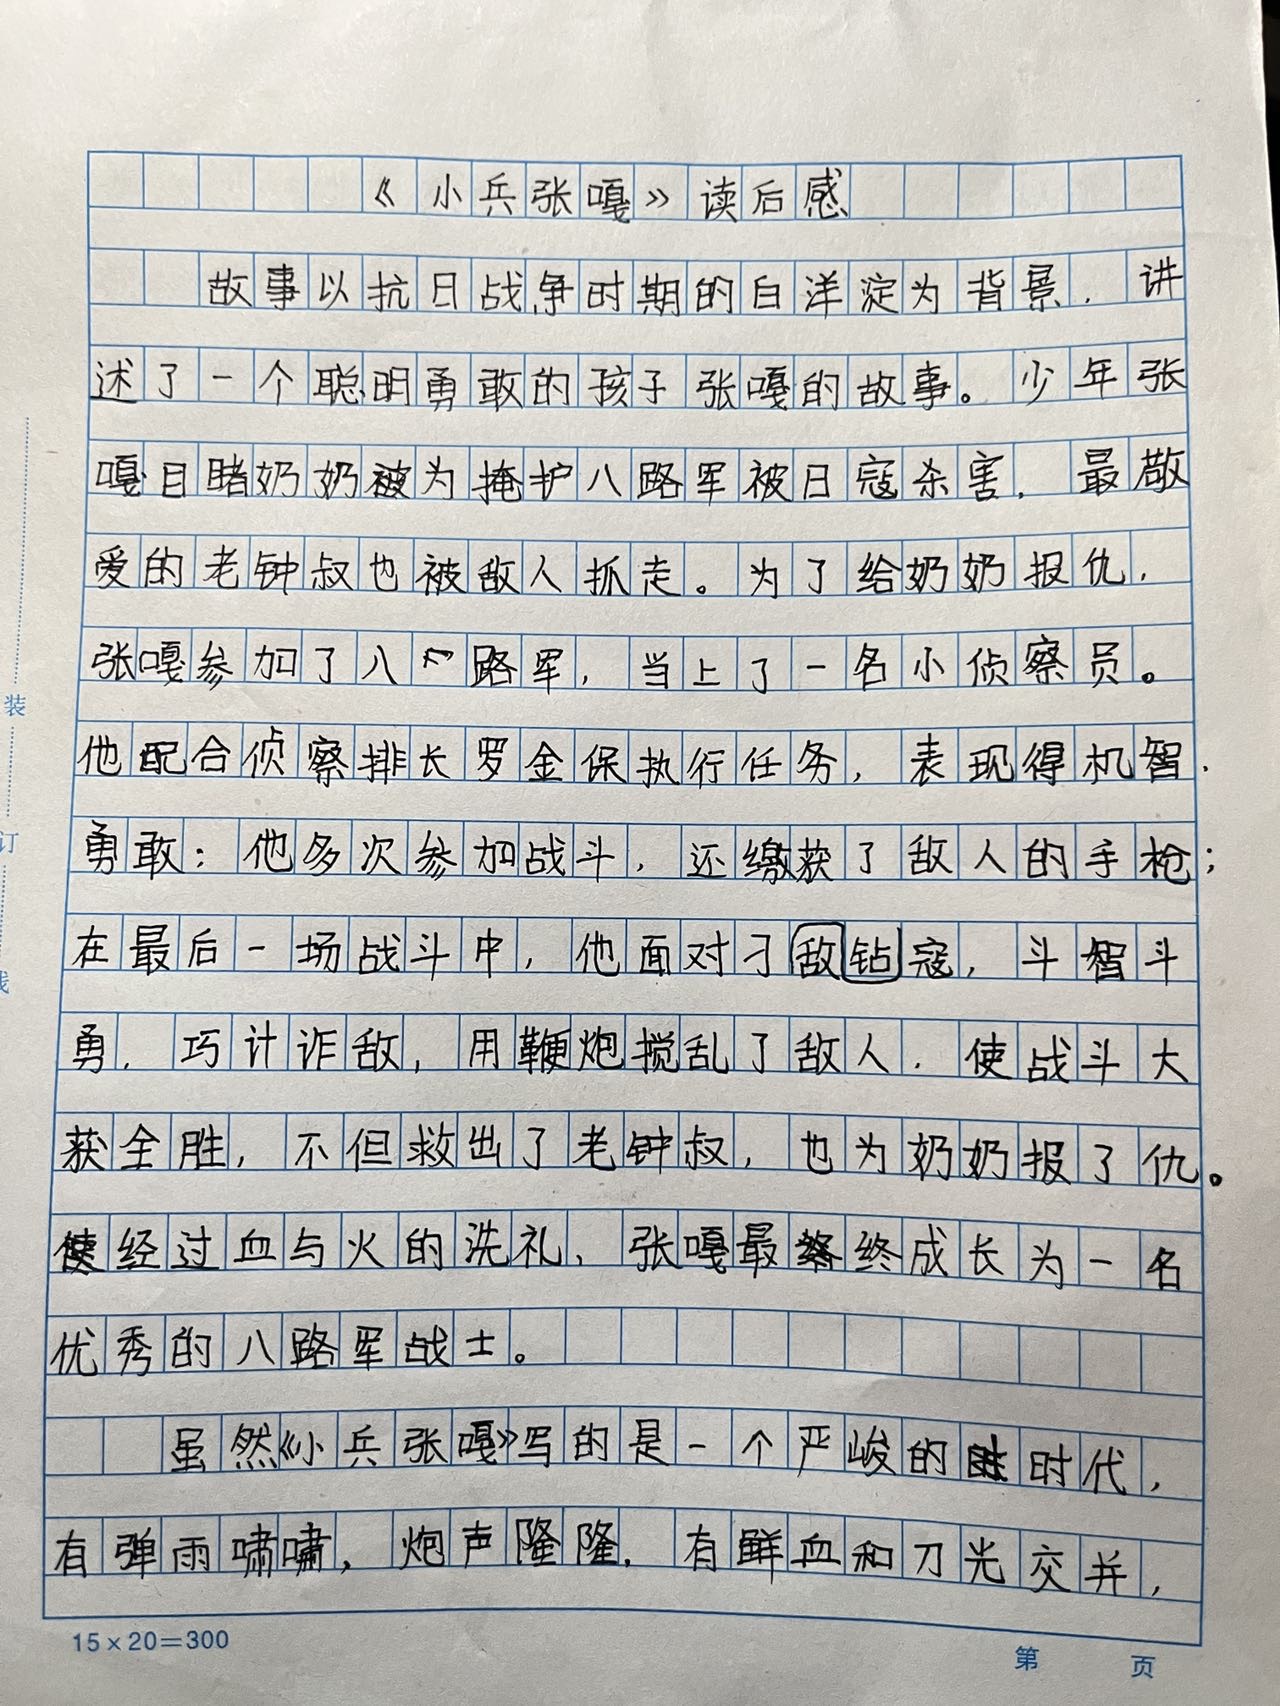 《小兵张嘎》读后感
故事以抗日战争时期的白洋淀为背景，讲
述了一个聪明勇敢的孩子张嘎的故事。少年张
嘎目睹奶奶被为掩护八路军被日寇杀害，最敬
爱的老钟叔也被敌人抓走。为了给奶奶报仇，
张嘎参加了八路军，当上了一名小侦察员。
他配合侦察排长罗金保执行任务，表现得机智、
勇敢；他多次参加战斗，还缴获了敌人的手枪；
在最后一场战斗中，他面对刁敌钻寇，斗智斗
勇，巧计诈敌，用鞭炮搅乱了敌人，使战斗大
获全胜，不但救出了老钟叔，也为奶奶报了仇。
经过血与火的洗礼，张嘎最终成长为一名
优秀的八路军战士。
虽然《小兵张嘎》写的是一个严峻的时代，
有弹雨啸啸，炮声隆隆，有鲜血和刀光交并，
15×20=300
第 页
装
订
线